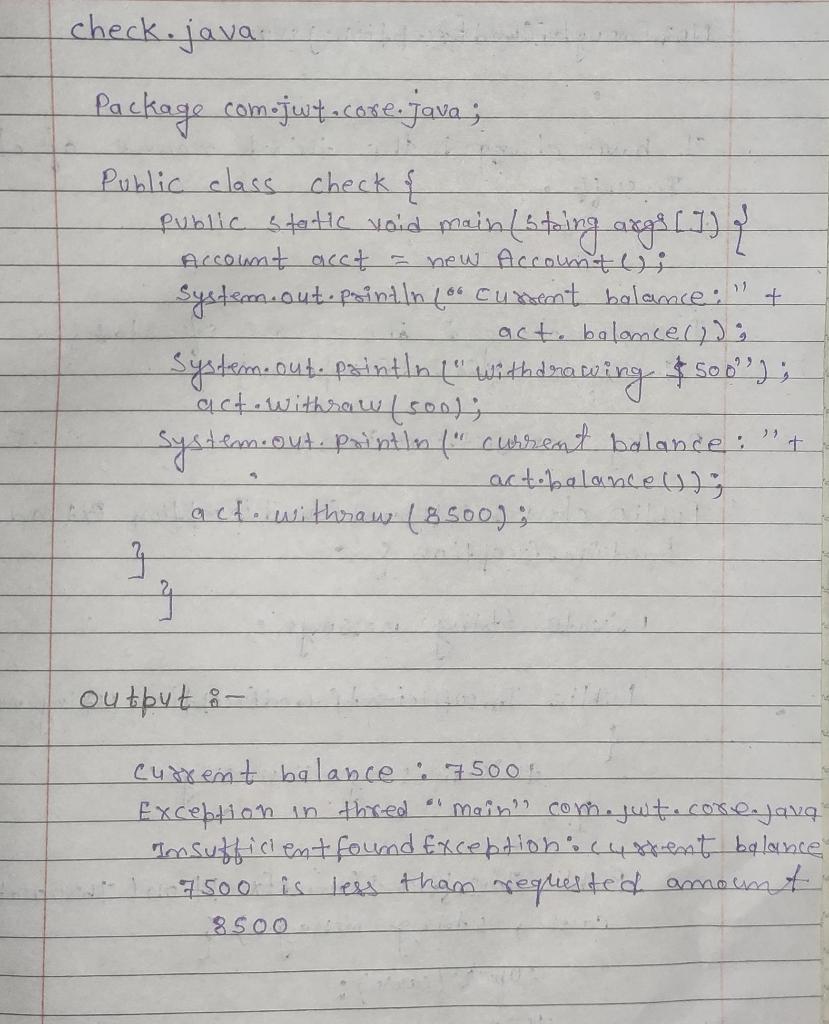 check.java
Package com.jwt.core.java;
Public class check {
Public static void main(string args[]) {
Account acct = new Account();
System.out.println("Current balance:" +
act.balance());
System.out.println("withdrawing $500");
act.withraw(500);
System.out.println("current balance:" +
act.balance());
act.withraw(8500);
}
}
Output :-
Current balance : 7500
Exception in thred "main" com.jwt.core.java
Insufficient found Exception: current balance
7500 is less than requested amount
8500